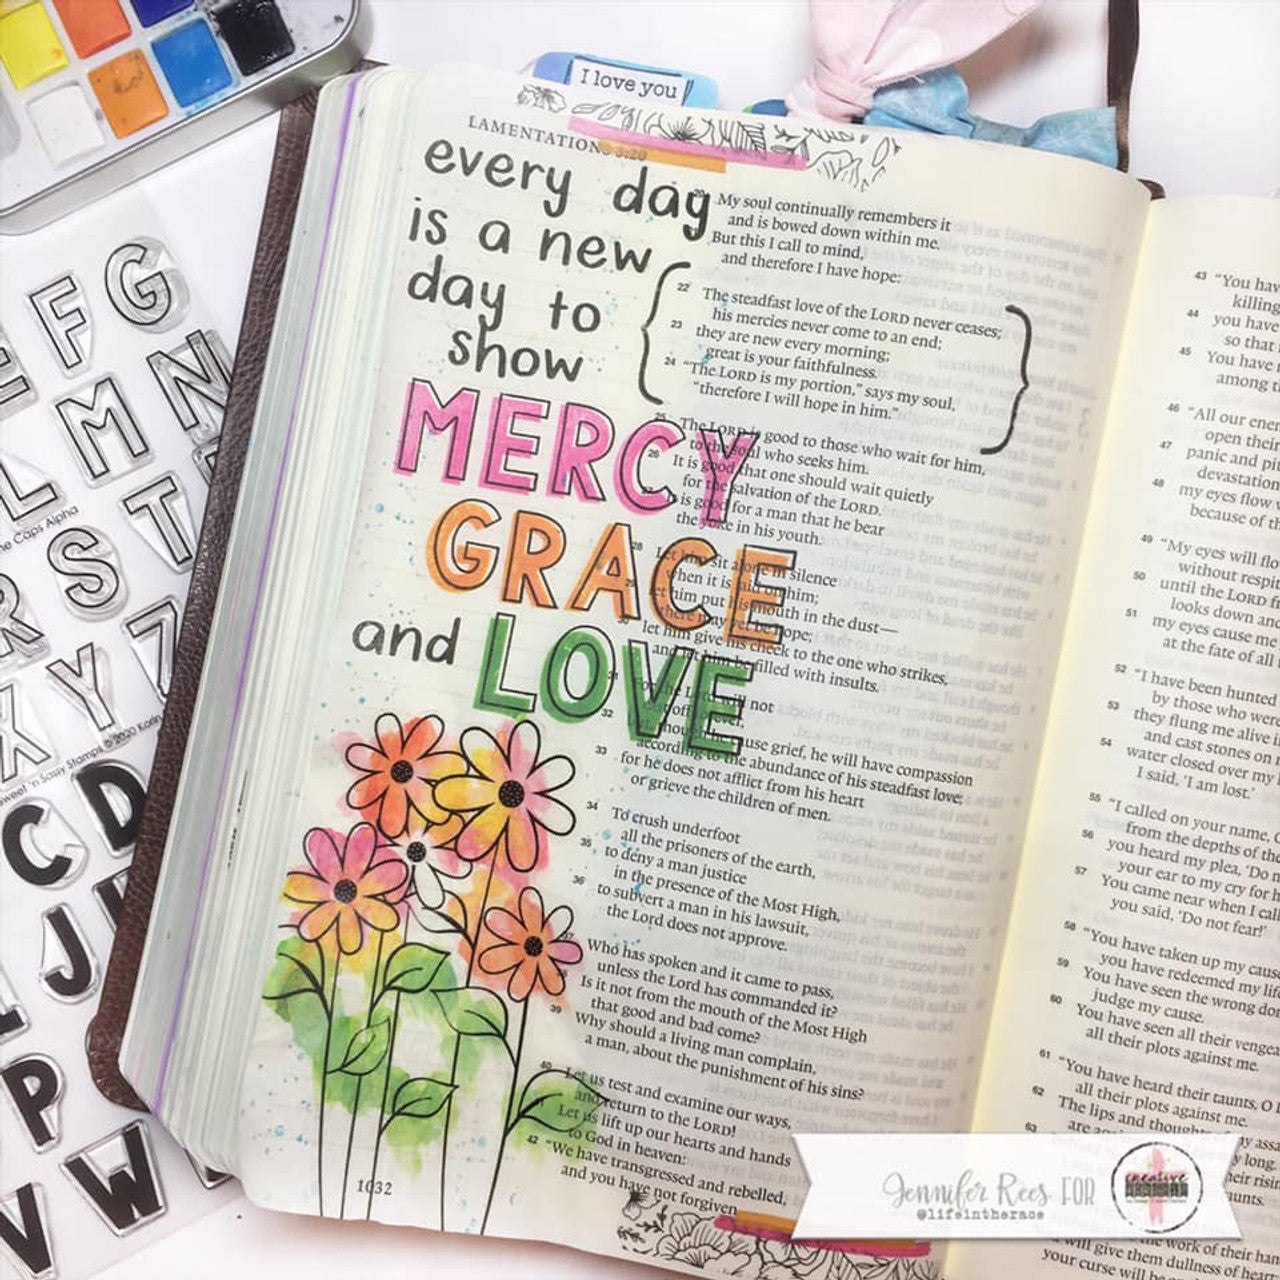 I love you
LAMENTATIONS 3:20
every day
is a new
day to
show
MERCY
GRACE
and LOVE
My soul continually remembers it
and is bowed down within me.
But this I call to mind,
and therefore I have hope:
22 The steadfast love of the LORD never ceases;
his mercies never come to an end;
23 they are new every morning;
great is your faithfulness.
24 "The LORD is my portion," says my soul,
"therefore I will hope in him."
25 The LORD is good to those who wait for him,
to the soul who seeks him.
26 It is good that one should wait quietly
for the salvation of the LORD.
is good for a man that he bear
the yoke in his youth.
28 Let him sit alone in silence
when it is laid on him;
29 let him put his mouth in the dust—
there may yet be hope;
30 let him give his cheek to the one who strikes,
and let him be filled with insults.
31 For the Lord will not
cast off forever,
32 but, though he cause grief, he will have compassion
according to the abundance of his steadfast love;
33 for he does not afflict from his heart
or grieve the children of men.
34 To crush underfoot
all the prisoners of the earth,
35 to deny a man justice
in the presence of the Most High,
36 to subvert a man in his lawsuit,
the Lord does not approve.
37 Who has spoken and it came to pass,
unless the Lord has commanded it?
Is it not from the mouth of the Most High
that good and bad come?
39 Why should a living man complain,
a man, about the punishment of his sins?
40 Let us test and examine our ways,
and return to the LORD!
Let us lift up our hearts and hands
to God in heaven:
42 "We have transgressed and rebelled,
and you have not forgiven.
1032
43 "You hav
killing
44 you have
so that
45 You have
among t
46 "All our ener
open their
47 panic and pi
devastation
48 my eyes flow
because of th
49 "My eyes will flo
without respit
50 until the LORD f
looks down and
51 my eyes cause me
at the fate of all
52 "I have been hunted
by those who were
53 they flung me alive i
and cast stones on
54 water closed over my
I said, 'I am lost.'
55 "I called on your name,
from the depths of th
56 you heard my plea, 'Do n
your ear to my cry for h
57 You came near when I call
you said, 'Do not fear!'
58 "You have taken up my caus
you have redeemed my lif
59 You have seen the wrong don
judge my cause.
60 You have seen all their vengea
all their plots against me.
61 "You have heard their taunts, O
all their plots against me.
62 The lips and thoughts
63
the work of their han
will give them dullness of hear
your curse will be
F G
M N
L
S T
R
Y Z
X
C D
J
P
V W
Caps Alpha
Sweet 'n Sassy Stamps © 2020
Jennifer Rees FOR
@lifeintherace
creative